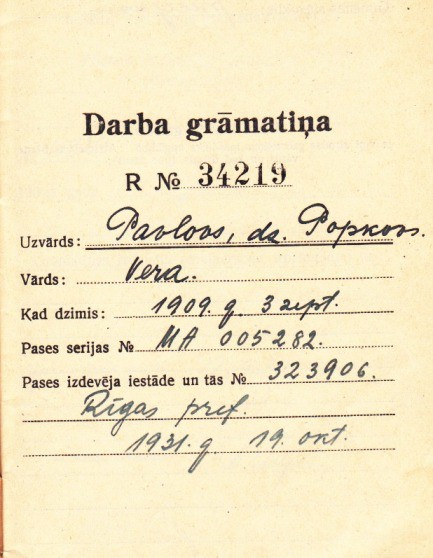 Darba grāmatiņa
R № 34219
Uzvārds: Pavlovs, dz. Popkovs.
Vārds: Vera.
Kad dzimis: 1909. g. 3 sept.
Pases serijas № MA 005282.
Pases izdevēja iestāde un tās № 323906.
Rīgas pref.
1931. g 19. okt.